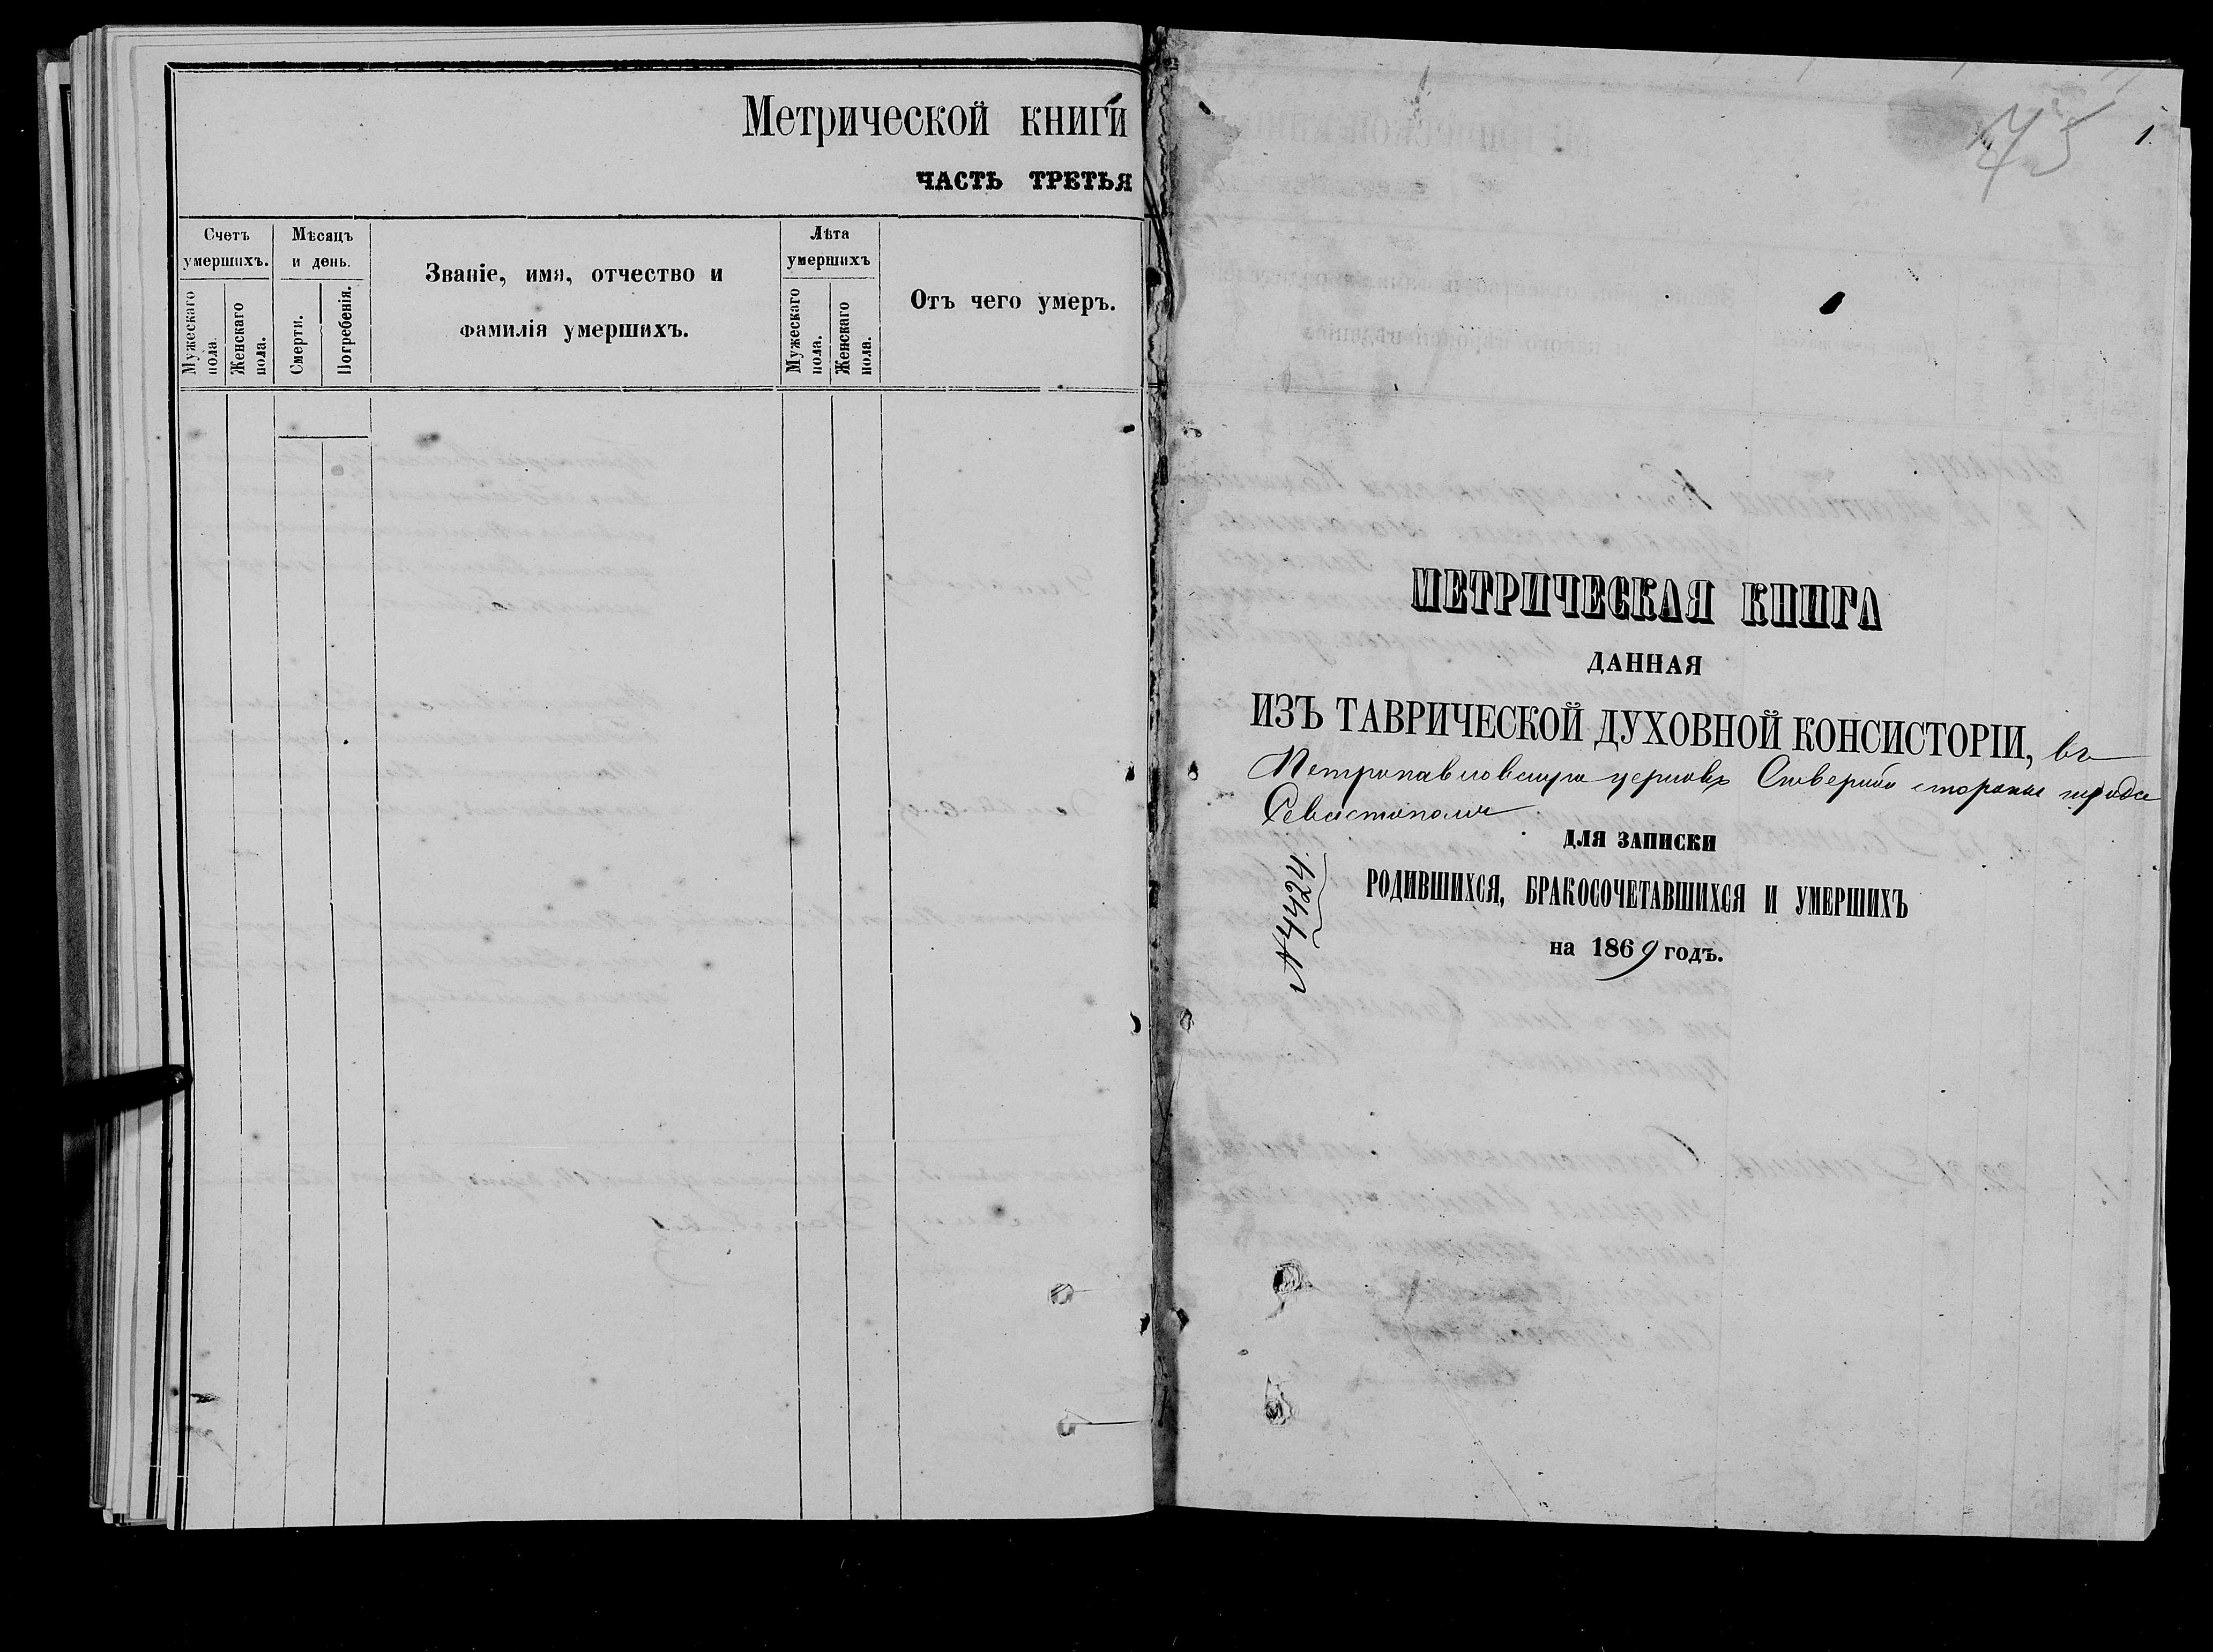 Метрической книги
ЧАСТЬ ТРЕТЬЯ
Счетъ умершихъ.
Мужескаго пола.
Женскаго пола.
Мѣсяцъ и день.
Смерти.
Погребенія.
Званіе, имя, отчество и
фамилія умершихъ.
Лѣта умершихъ
Мужескаго пола.
Женскаго пола.
Отъ чего умеръ.
75
1.
МЕТРИЧЕСКАЯ КНИГА
ДАННАЯ
ИЗЪ ТАВРИЧЕСКОЙ ДУХОВНОЙ КОНСИСТОРІИ, въ
Петропавловскую церковь Сѣверной стороны города
Севастополя
№ 4424
ДЛЯ ЗАПИСКИ
РОДИВШИХСЯ, БРАКОСОЧЕТАВШИХСЯ И УМЕРШИХЪ
на 1869 годъ.